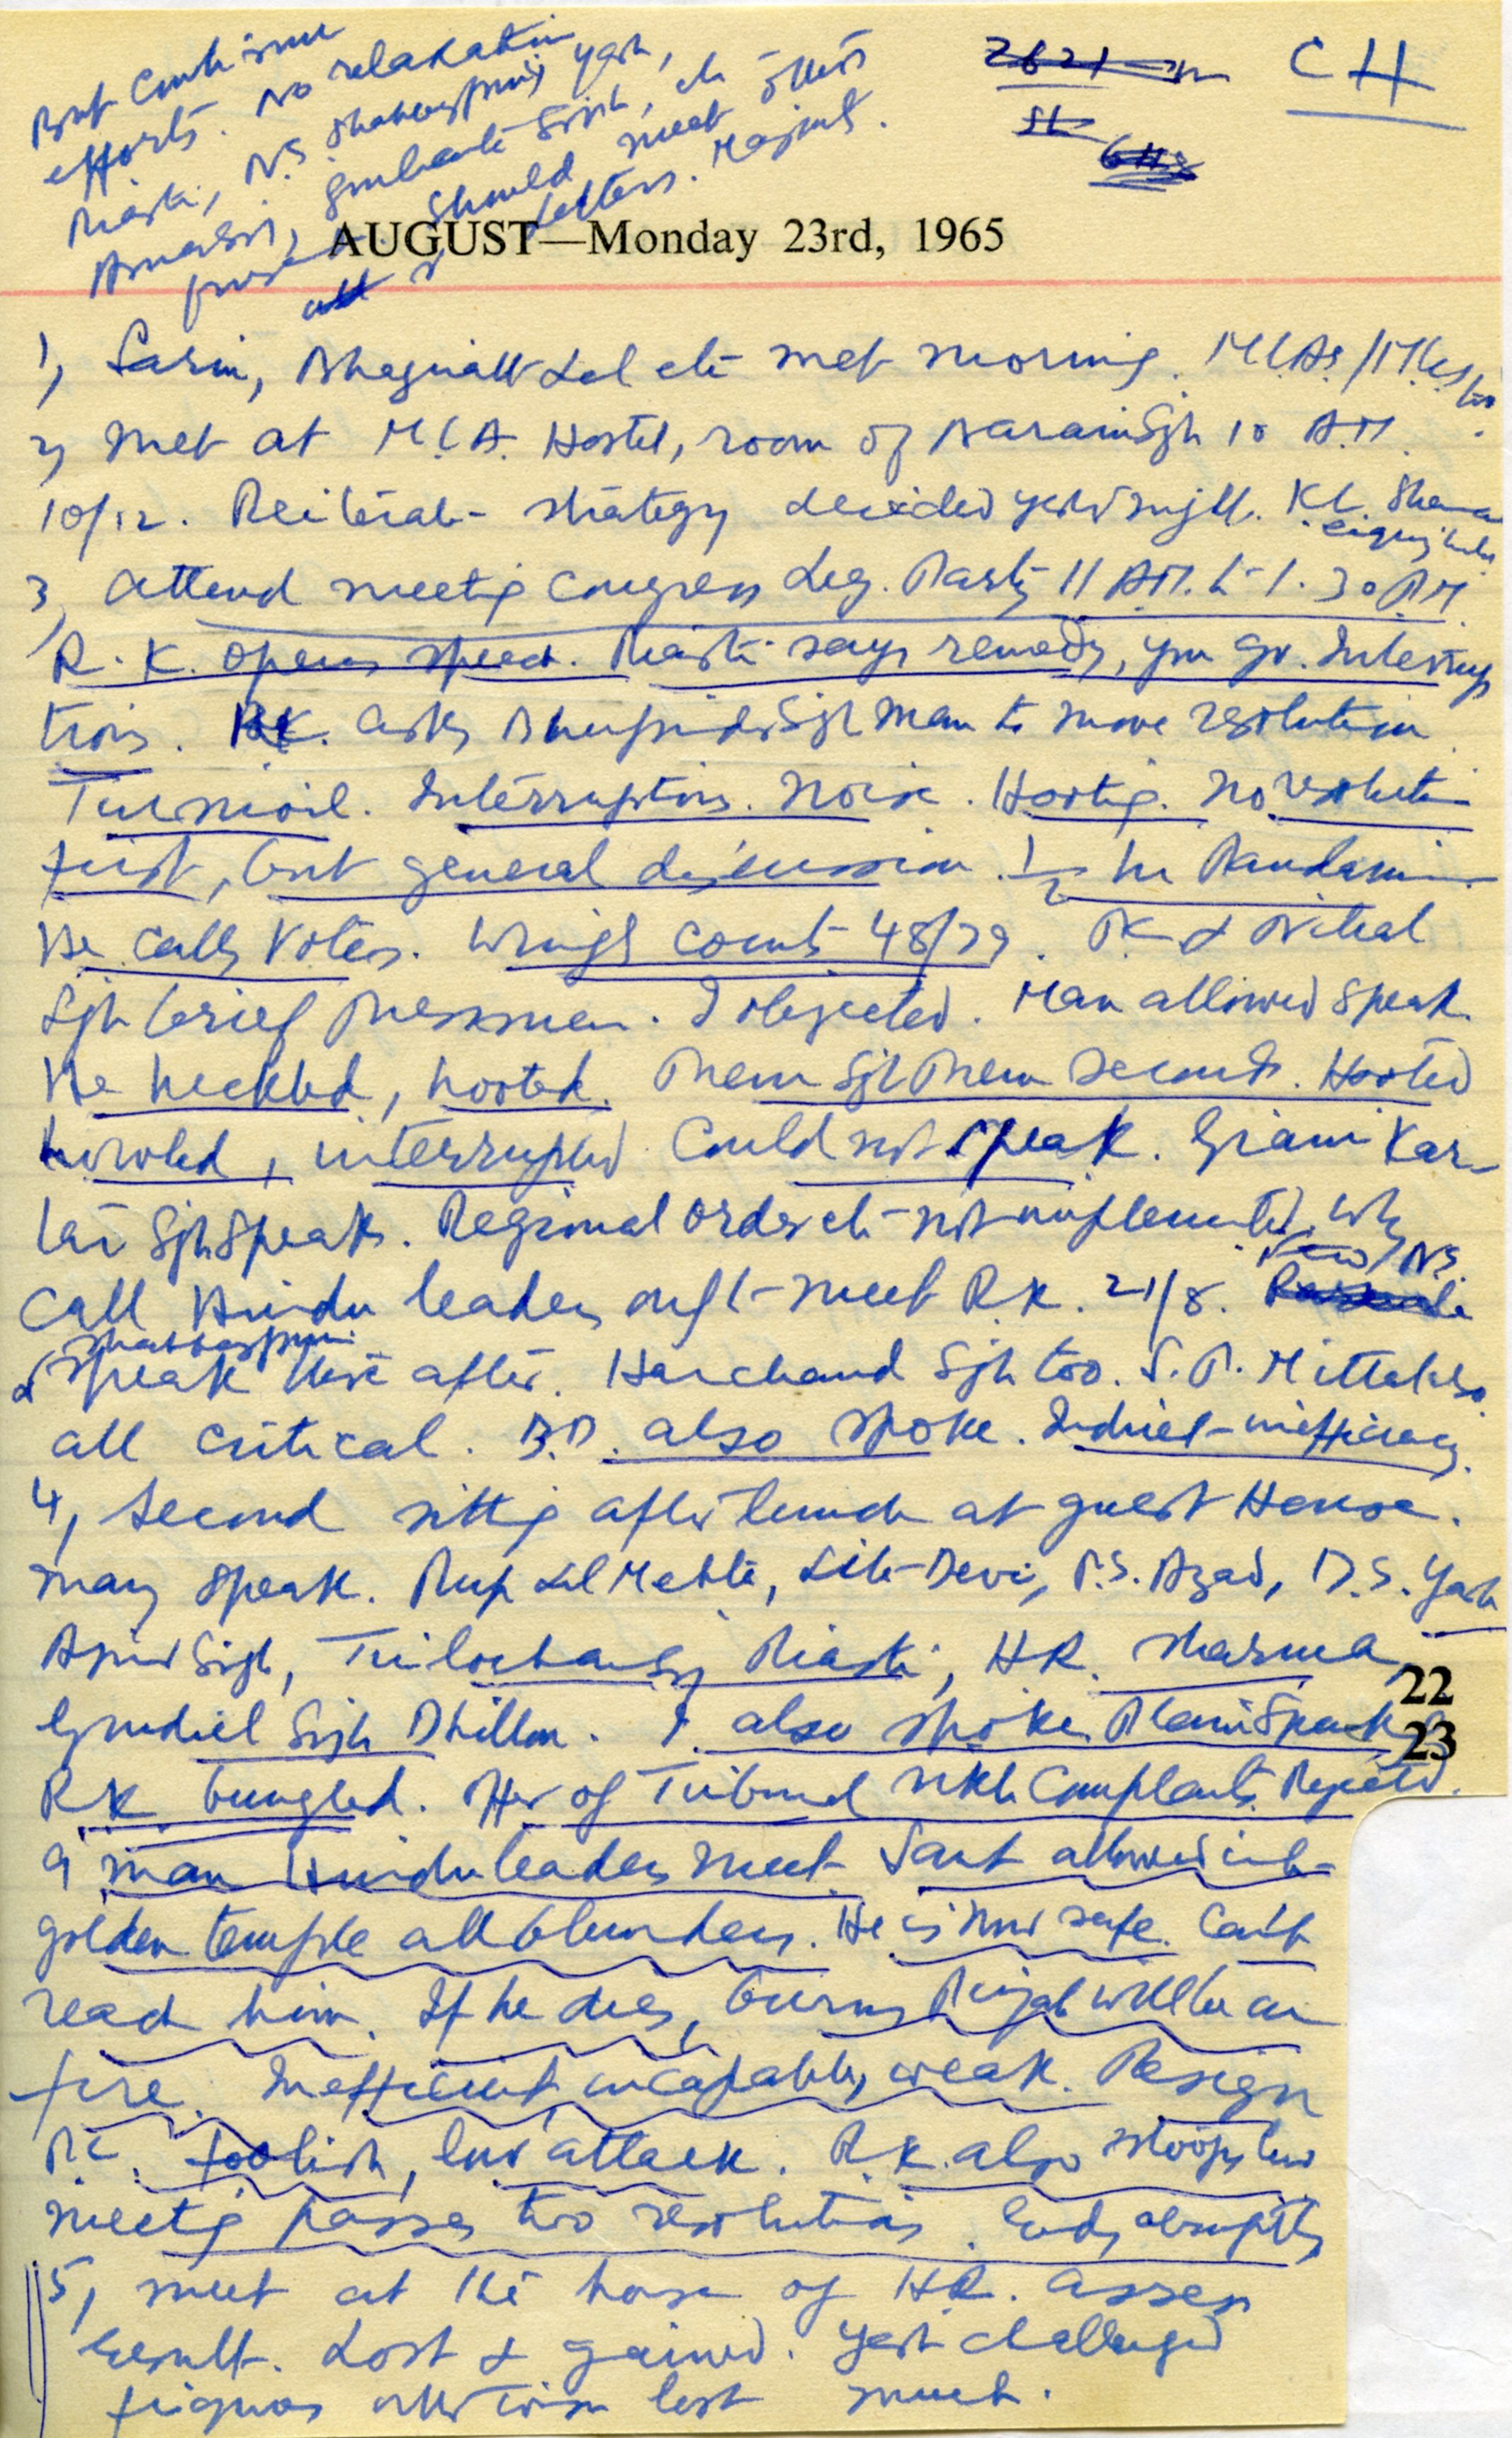 But continue
efforts. No relaxation
Riasti, N.S. Shahbazpuri, Yash,
Amar Singh, Gurbanta Singh, etc others
present. Should meet
all
letters. Majority.
CH
AUGUST—Monday 23rd, 1965
1, Sarin, Bhagwatt Lal etc met morning. MLAs/MLCs too
2, Met at M.L.A. Hostel, room of Narain Sgh 10 A.M.
10/12. Reiterate strategy decided yesternight. K.L. Sharma
3, Attend meeting Congress Leg. Party 11 A.M. to 1.30 P.M.
R.K. opens speech. Riasti says remedy, you go. Interrup-
tions. RK. asks Bhupinder Sgh Man to move resolution
Turmoil. Interruptions. Noise. Hooting. No resolution
first, but general discussion. ½ hr Pandamonium
He calls Votes. Wrongly counts 48/29. RK &
Sgh brief pressmen. I objected. Man allowed speak.
He heckled, hooted. Prem Sgh Prem seconds. Hooted
howled, interrupted. Could not speak. Giani Kar-
tar Sgh speaks. Regional order etc not implemented. Why
call Hindu leaders only to meet R.K. 21/8. N.S.
& Shahbazpuri
speak there after. Harchand Sgh too. S.P. Mittal also
all critical. B.D. also spoke. Indirect inefficiency.
4, Second sitting after lunch at guest House.
many speak. Rup Lal Mehta, Lila Devi, P.S. Azad, D.S. Yash
Ajmer Singh, Trilochan Sgh Riasti, H.R. Sharma,
Gurdial Singh Dhillon. I also spoke. Plain Speak
22
23
R.K. bungled. Offer of Tribunal Sikh Complaints Rejected.
9 man Hindu leaders meet. Sant allowed into
golden temple all blunders. He is now safe. Can't
reach him. If he dies, burns Punjab will be on
fire. Inefficient, incapable, weak. Resign
R.K. foolish, low attack. R.K. also stoops low
meeting passes two resolutions. Ends abruptly
5, meet at the house of H.R. assess
result. Lost & gained. Yash challenged
figures otherwise lost much.